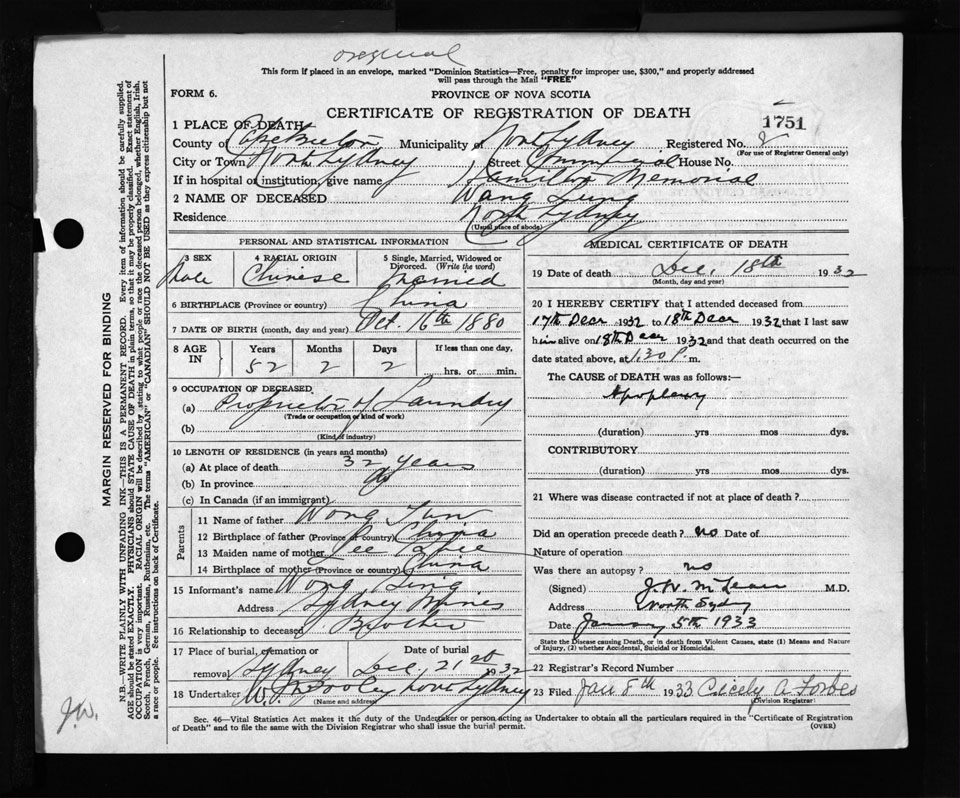 original
This form if placed in an envelope, marked "Dominion Statistics—Free, penalty for improper use, $300," and properly addressed
will pass through the Mail "FREE"
FORM 6.
PROVINCE OF NOVA SCOTIA
CERTIFICATE OF REGISTRATION OF DEATH
1751
1 PLACE OF DEATH
County of Cape Breton Municipality of North Sydney Registered No.
(For use of Registrar General only)
City or Town North Sydney Street Commercial House No.
If in hospital or institution, give name Hamilton Memorial
2 NAME OF DECEASED Wong Lung
Residence North Sydney
(Usual place of abode)
PERSONAL AND STATISTICAL INFORMATION
3 SEX Male
4 RACIAL ORIGIN Chinese
5 Single, Married, Widowed or Divorced. (Write the word) Married
6 BIRTHPLACE (Province or country) China
7 DATE OF BIRTH (month, day and year) Oct. 16th 1880
8 AGE IN Years Months Days If less than one day,
52 2 2 hrs. or min.
9 OCCUPATION OF DECEASED
(a) Proprietor of Laundry
(Trade or occupation or kind of work)
(b)
(Kind of industry)
10 LENGTH OF RESIDENCE (in years and months)
(a) At place of death 32 years
(b) In province
(c) In Canada (if an immigrant)
Parents
11 Name of father Wong
12 Birthplace of father (Province or country) China
13 Maiden name of mother Lee
14 Birthplace of mother (Province or country) China
15 Informant's name Wong
Address Sydney Mines
16 Relationship to deceased Brother
17 Place of burial, cremation or removal Sydney
Date of burial Dec. 21st 1932
18 Undertaker W. J. Dooley North Sydney
(Name and address)
MEDICAL CERTIFICATE OF DEATH
19 Date of death Dec. 18th 1932
(Month, day and year)
20 I HEREBY CERTIFY that I attended deceased from
17th Decr 1932 to 18th Decr 1932 that I last saw
him alive on 18th Decr 1932 and that death occurred on the
date stated above, at 1.30 P. m.
The CAUSE of DEATH was as follows:—
Apoplexy
(duration) yrs mos dys.
CONTRIBUTORY
(duration) yrs mos dys.
21 Where was disease contracted if not at place of death?
Did an operation precede death? no Date of
Nature of operation
Was there an autopsy? no
(Signed) McLean M.D.
Address North Sydney
Date January 5th 1933
State the Disease causing Death, or in death from Violent Causes, state (1) Means and Nature
of Injury, (2) whether Accidental, Suicidal or Homicidal.
22 Registrar's Record Number
23 Filed Jan 8th 1933 Cicely A Forbes
(Division Registrar)
Sec. 46—Vital Statistics Act makes it the duty of the Undertaker or person acting as Undertaker to obtain all the particulars required in the "Certificate of Registration
of Death" and to file the same with the Division Registrar who shall issue the burial permit.
(OVER)
MARGIN RESERVED FOR BINDING
N.B.—WRITE PLAINLY WITH UNFADING INK—THIS IS A PERMANENT RECORD. Every item of information should be carefully supplied.
AGE should be stated EXACTLY. PHYSICIANS should STATE CAUSE OF DEATH in plain terms, so that it may be properly classified. Exact statement of
OCCUPATION is very important. RACIAL ORIGIN will be described by stating to what people or race the deceased person belonged, whether English, Irish,
Scotch, French, German, Russian, Ruthenian, etc. The terms "AMERICAN" or "CANADIAN" SHOULD NOT BE USED as they express citizenship but not
a race or people. See instructions on back of Certificate.